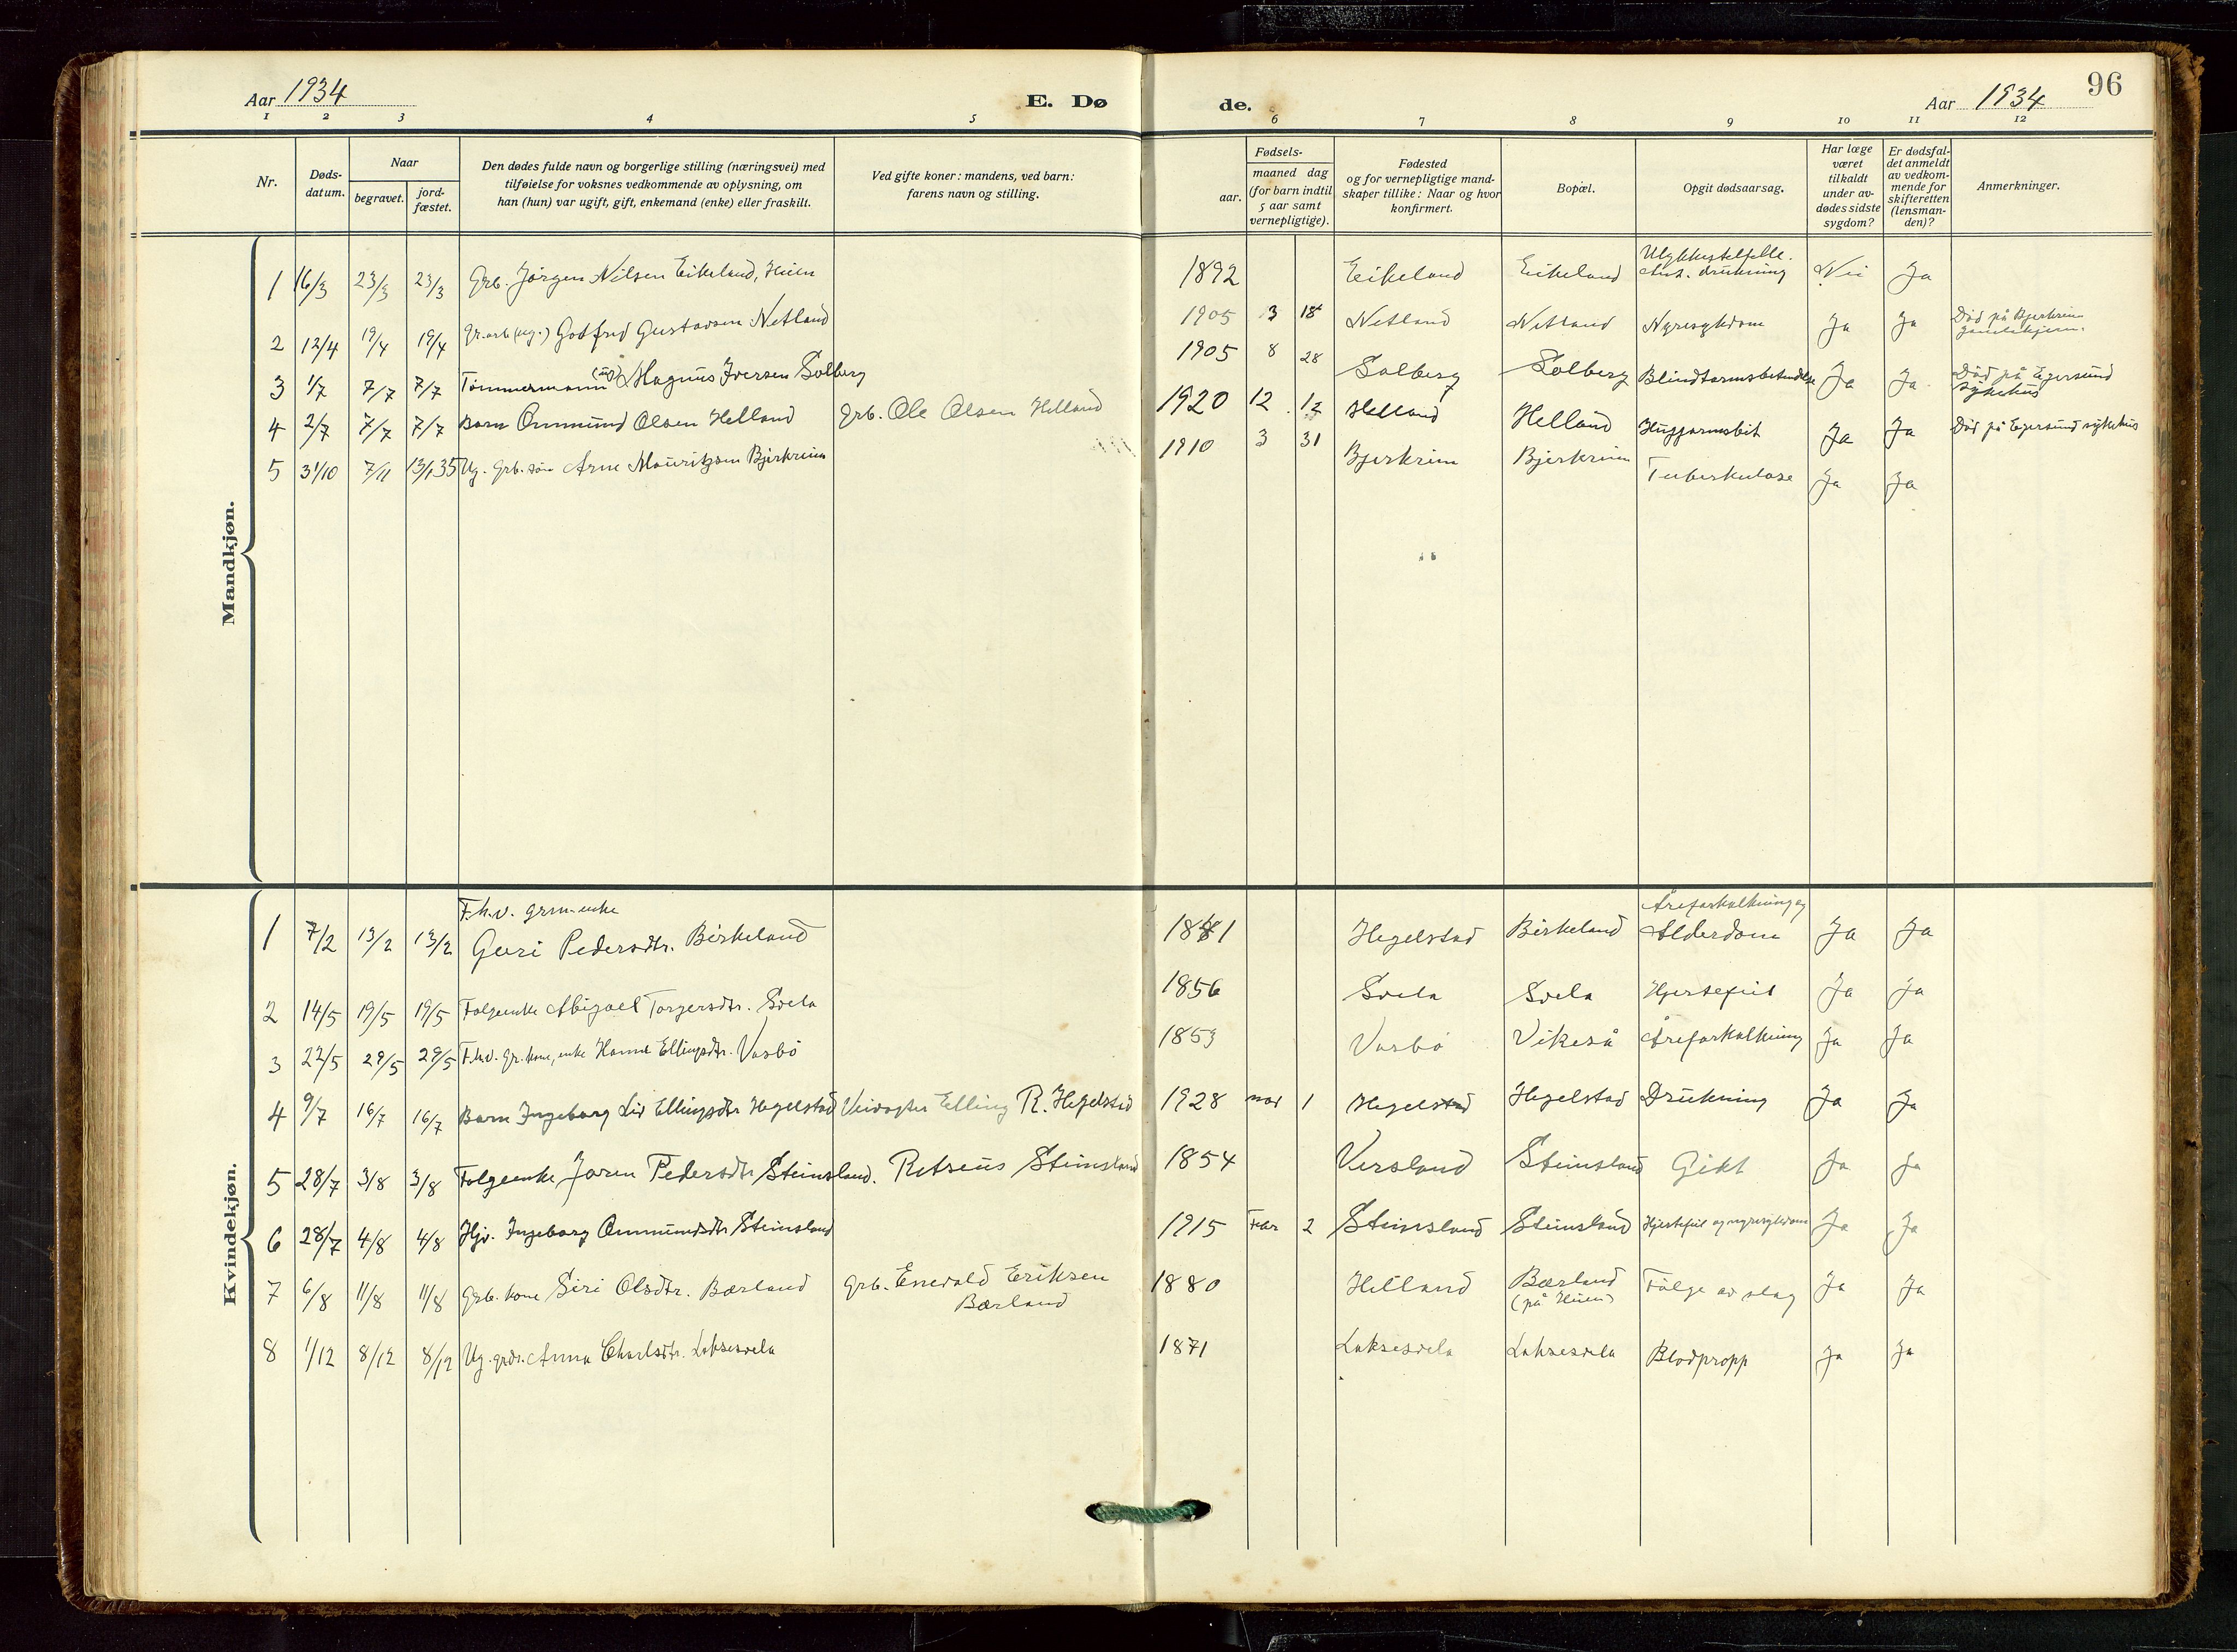 96
Aar 1934 E. Dø de. Aar 1934
1 2 3 4 5 6 7 8 9 10 11 12
Nr. Døds-datum. Naar begravet. jord-fæstet. Den dødes fulde navn og borgerlige stilling (næringsvei) med tilføielse for voksnes vedkommende av oplysning, om han (hun) var ugift, gift, enkemand (enke) eller fraskilt. Ved gifte koner: mandens, ved barn: farens navn og stilling. Fødsels- aar. maaned dag (for barn indtil 5 aar samt vernepligtige). Fødested og for vernepligtige mand-skaper tillike: Naar og hvor konfirmert. Bopæl. Opgit dødsaarsag. Har læge været tilkaldt under av-dødes sidste sygdom? Er dødsfal-det anmeldt av vedkom-mende for skifteretten (lensman-den)? Anmerkninger.
Mandkjøn.
1 16/3 23/3 23/3 Grb. Jørgen Nilsen Eikeland, Huen 1892 Eikeland Eikeland Ulykkestilfelle. Ant. drukning Nei Ja
2 12/4 19/4 19/4 Gr.arb (ug.) Godfred Gustavsen Netland 1905 3 18 Netland Netland Nyresykdom Ja Ja Død på Bjerkreim gamlehjem.
3 1/7 7/7 7/7 Tømmermann (ug) Magnus Iversen Solberg 1905 8 28 Solberg Solberg Blindtarmsbetendelse Ja Ja Død på Egersund sykehus
4 2/7 7/7 7/7 Barn Ommund Olsen Helland Grb. Ole Olsen Helland 1920 12 12 Helland Helland Huggormsbit Ja Ja Død på Egersund sykehus
5 31/10 7/11 13/1 35 Ug. Grb. søn Arne Mauritzsen Bjerkreim 1910 3 31 Bjerkreim Bjerkreim Tuberkulose Ja Ja
Kvindekjøn.
1 7/2 13/2 13/2 F.h.v. grm.enke Guri Pedersdtr. Birkeland 1841 Hegelstad Birkeland Åreforkalkning og Alderdom Ja Ja
2 14/5 19/5 19/5 Folgeenke Abigael Torgersdtr. Svela 1856 Svela Svela Hjertefeil Ja Ja
3 22/5 29/5 29/5 F.h.v. gr. kone, enke Hanne Ellingsdtr. Vasbø 1853 Vasbø Vikeså Åreforkalkning Ja Ja
4 9/7 16/7 16/7 Barn Ingeborg Liv Ellingsdtr Hegelstad Veivogter Elling R. Hegelstad 1928 nov 1 Hegelstad Hegelstad Drukning Ja Ja
5 28/7 3/8 3/8 Folgeenke Joren Pedersdtr Steinsland. Retseus Steinsland 1854 Versland Steinsland Gikt Ja Ja
6 28/7 4/8 4/8 Hjv. Ingeborg Ommundsdtr Steinsland 1915 Febr 2 Steinsland Steinsland Hjertefeil og nyresykdom Ja Ja
7 6/8 11/8 11/8 Grb. kone Siri Olsdtr. Bærland Grb. Enevald Eriksen Bærland 1880 Helland Bærland (på Huen) Følge av slag Ja Ja
8 1/12 8/12 8/12 Ug. grdr. Anna Charlsdtr. Laksesvela 1871 Laksesvela Laksesvela Blodpropp Ja Ja